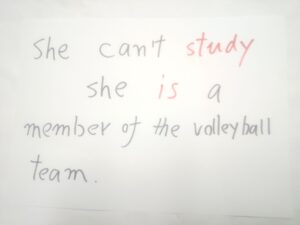 She can't study
she is a
member of the volleyball
team.